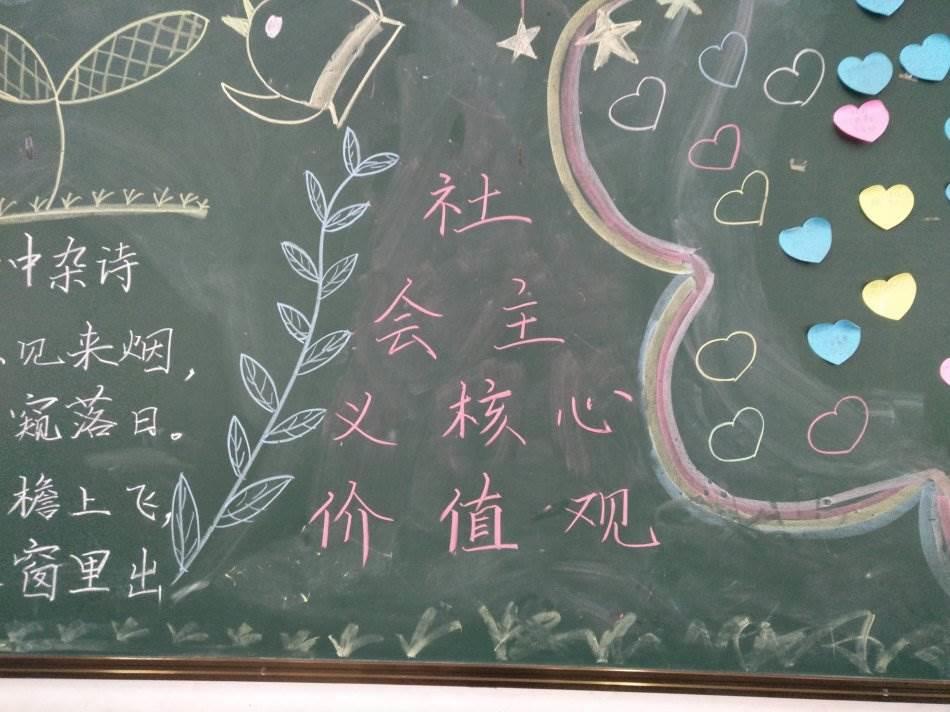 中杂诗
见来烟，
窥落日。
檐上飞，
窗里出
社
会主
义核心
价值观